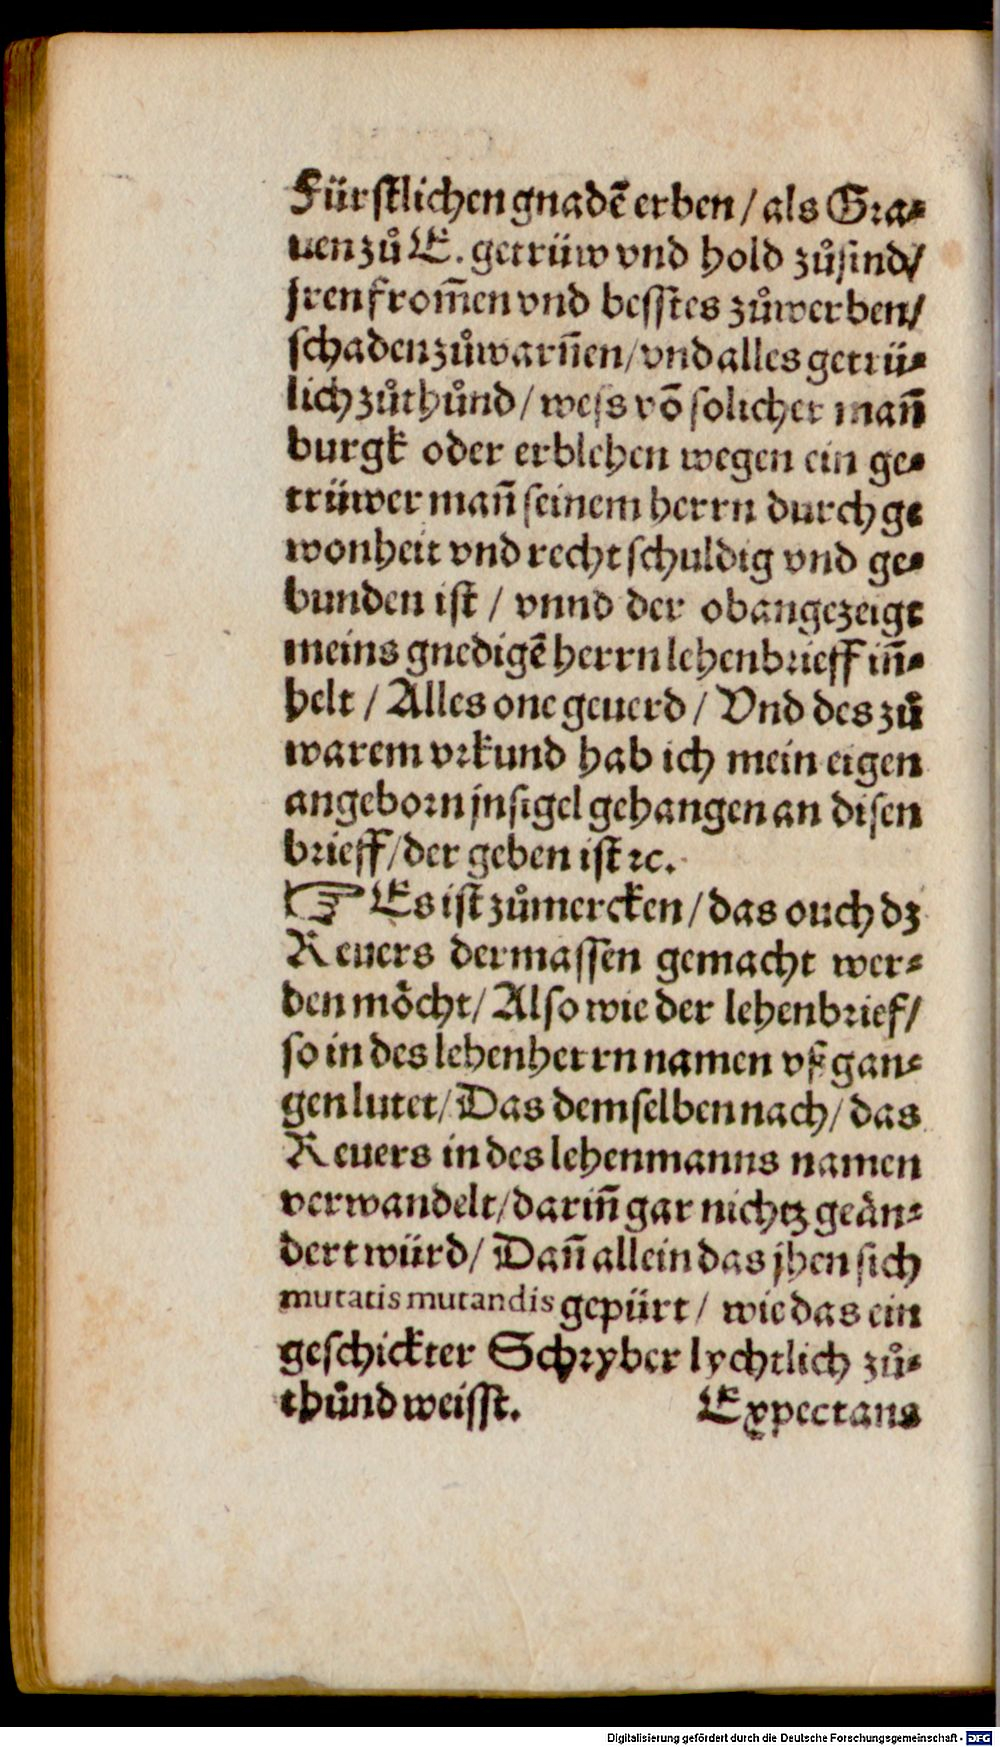 Fürstlichen gnadē erben / als Gra⸗
uen zů E. getrüw vnd hold zůsind/
jren from̄en vnd besstes zůwerben/
schaden zůwarn̄en/ vnd alles getrü⸗
lich zůthůnd / wess vō solicher man̄
burgk oder erblehen wegen ein ge⸗
trüwer man̄ seinem herrn durch ge
wonheit vnd recht schuldig vnd ge⸗
bunden ist / vnnd der obangezeigt
meins gnedigē herrn lehenbrieff in̄⸗
helt / Alles one geuerd / Vnd des zů
warem vrkund hab ich mein eigen
angeborn jnsigel gehangen an disen
brieff/ der geben ist ꝛc.
☞ Es ist zůmercken / das ouch dz
Reuers dermassen gemacht wer⸗
den mӧcht/ Also wie der lehenbrief/
so in des lehenherrn namen vß gan⸗
gen lutet/ Das demselben nach/ das
Reuers in des lehenmanns namen
verwandelt/ darin̄ gar nichtz geän⸗
dert würd/ Dan̄ allein das jhen sich
mutatis mutandis gepürt / wie das ein
geschickter Schryber lychtlich zů⸗
thůnd weisst. Expectans
Digitalisierung gefördert durch die Deutsche Forschungsgemeinschaft - DFG